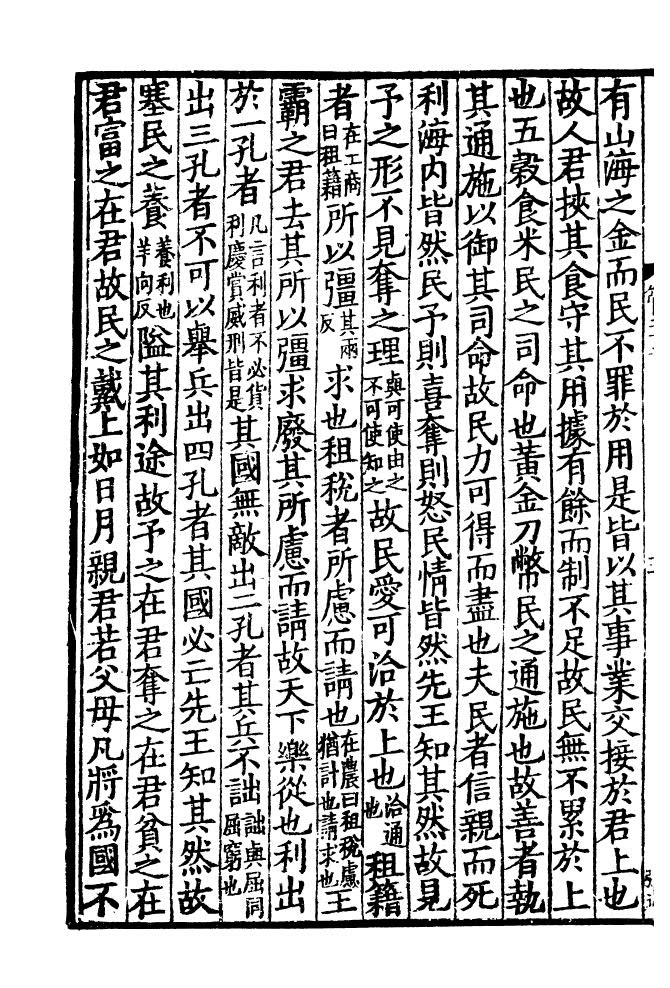 有山海之金而民不罪於用是皆以其事業交接於君上也
故人君挾其食守其用據有餘而制不足故民無不累於上
也五穀食米民之司命也黃金刀幣民之通施也故善者執
其通施以御其司命故民力可得而盡也夫民者信親而死
利海内皆然民予則喜奪則怒民情皆然先王知其然故見
予之形不見奪之理與可使由之不可使知之故民愛可洽於上也洽通也租籍
者在工商曰租籍所以彊其兩反求也租稅者所慮而請也在農曰租稅慮猶計也請求也王
霸之君去其所以彊求廢其所慮而請故天下樂從也利出
於一孔者凡言利者不必貨利慶賞威刑皆是其國無敵出二孔者其兵不詘詘與屈同屈窮也
出三孔者不可以舉兵出四孔者其國必亡先王知其然故
塞民之養養利也羊向反隘其利途故予之在君奪之在君貧之在
君富之在君故民之戴上如日月親君若父母凡將爲國不